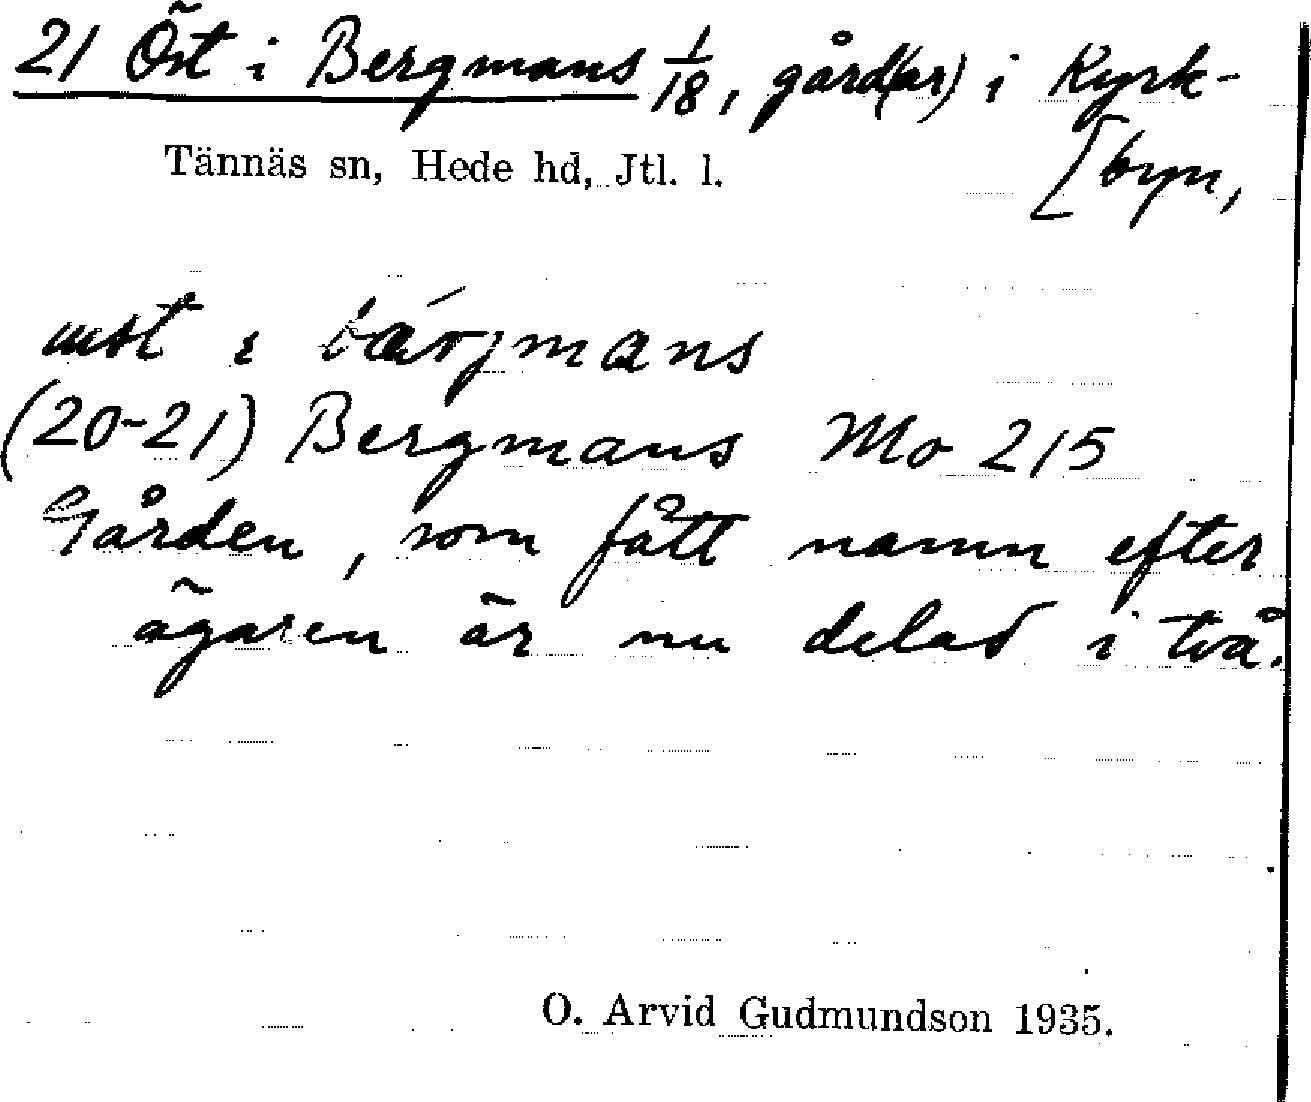 21 Öst i Bergmans 1/18, gård(ar) i Kyrk-
[byn,
Tännäs sn, Hede hd, Jtl. l.
i bärgmans
(20-21) Bergmans Mo 215
Gården, som fått namn efter
ägaren är nu delad i två.
O. Arvid Gudmundson 1935.